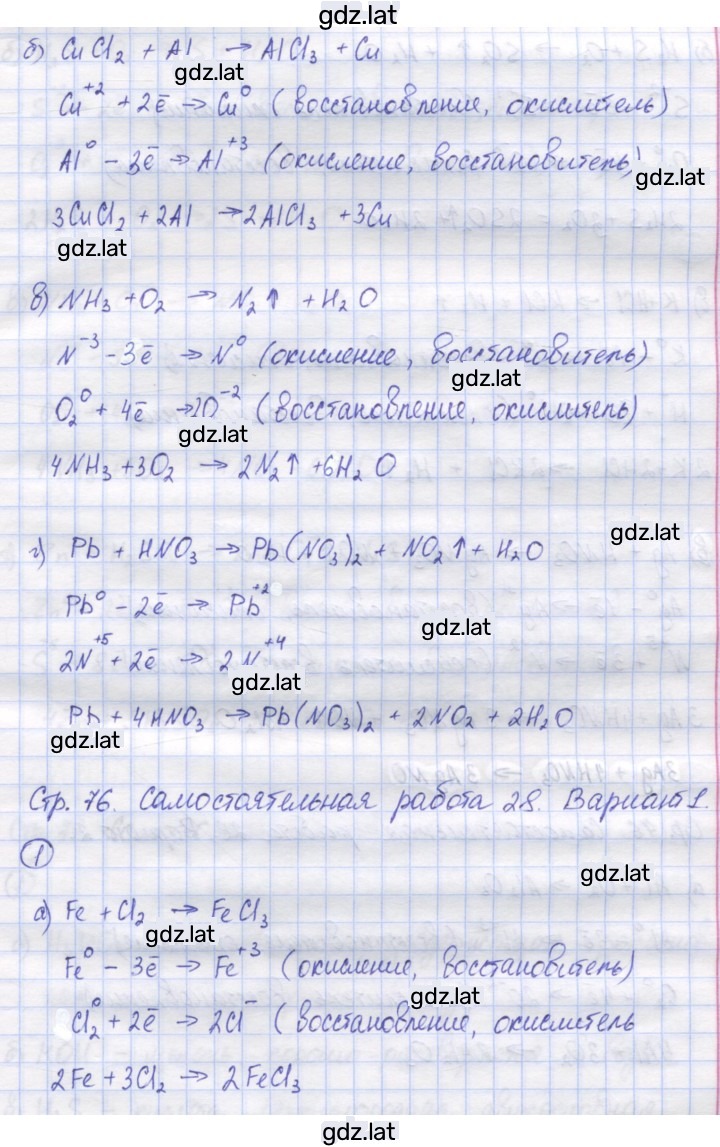 gdz.lat
б) CuCl₂ + Al → AlCl₃ + Cu
gdz.lat
Cu⁺² + 2ē → Cu⁰ (восстановление, окислитель)
Al⁰ - 3ē → Al⁺³ (окисление, восстановитель)
gdz.lat
3CuCl₂ + 2Al → 2AlCl₃ + 3Cu
gdz.lat
в) NH₃ + O₂ → N₂↑ + H₂O
N⁻³ - 3ē → N⁰ (окисление, восстановитель)
gdz.lat
O₂⁰ + 4ē → 2O⁻² (восстановление, окислитель)
gdz.lat
4NH₃ + 3O₂ → 2N₂↑ + 6H₂O
gdz.lat
г) Pb + HNO₃ → Pb(NO₃)₂ + NO₂↑ + H₂O
Pb⁰ - 2ē → Pb⁺²
gdz.lat
2N⁺⁵ + 2ē → 2N⁺⁴
gdz.lat
Pb + 4HNO₃ → Pb(NO₃)₂ + 2NO₂ + 2H₂O
gdz.lat
Стр. 76. Самостоятельная работа 28. Вариант 1.
1
gdz.lat
а) Fe + Cl₂ → FeCl₃
gdz.lat
Fe⁰ - 3ē → Fe⁺³ (окисление, восстановитель)
gdz.lat
Cl₂⁰ + 2ē → 2Cl⁻ (восстановление, окислитель
2Fe + 3Cl₂ → 2FeCl₃
gdz.lat